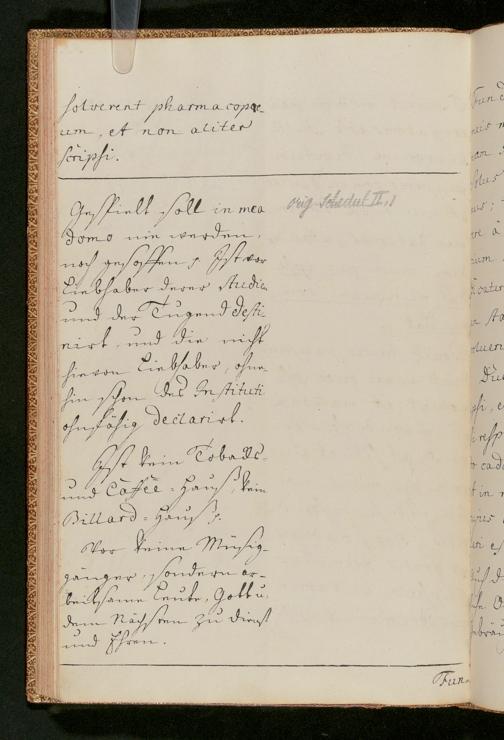 solverent pharmacopoe-
um, et non aliter
scripsi.
Gespielt soll in mea
domo nie werden,
noch gesoffen, Ist vor
Liebhaber derer Studien
und der Tugend desti-
nirt, und die nicht
hievon Liebhaber, ohne-
hin schon des Instituti
ohnfähig declarirt.
orig Schedul II, 1
Ist kein Tobacks-
und Caffée-Hauß, kein
Billard-Hauß.
Vor keine Müsig-
gänger, sondern ar-
beitsame Leute, Gott u.
dem Nächsten zu dienst
und Ehren.
Fun-